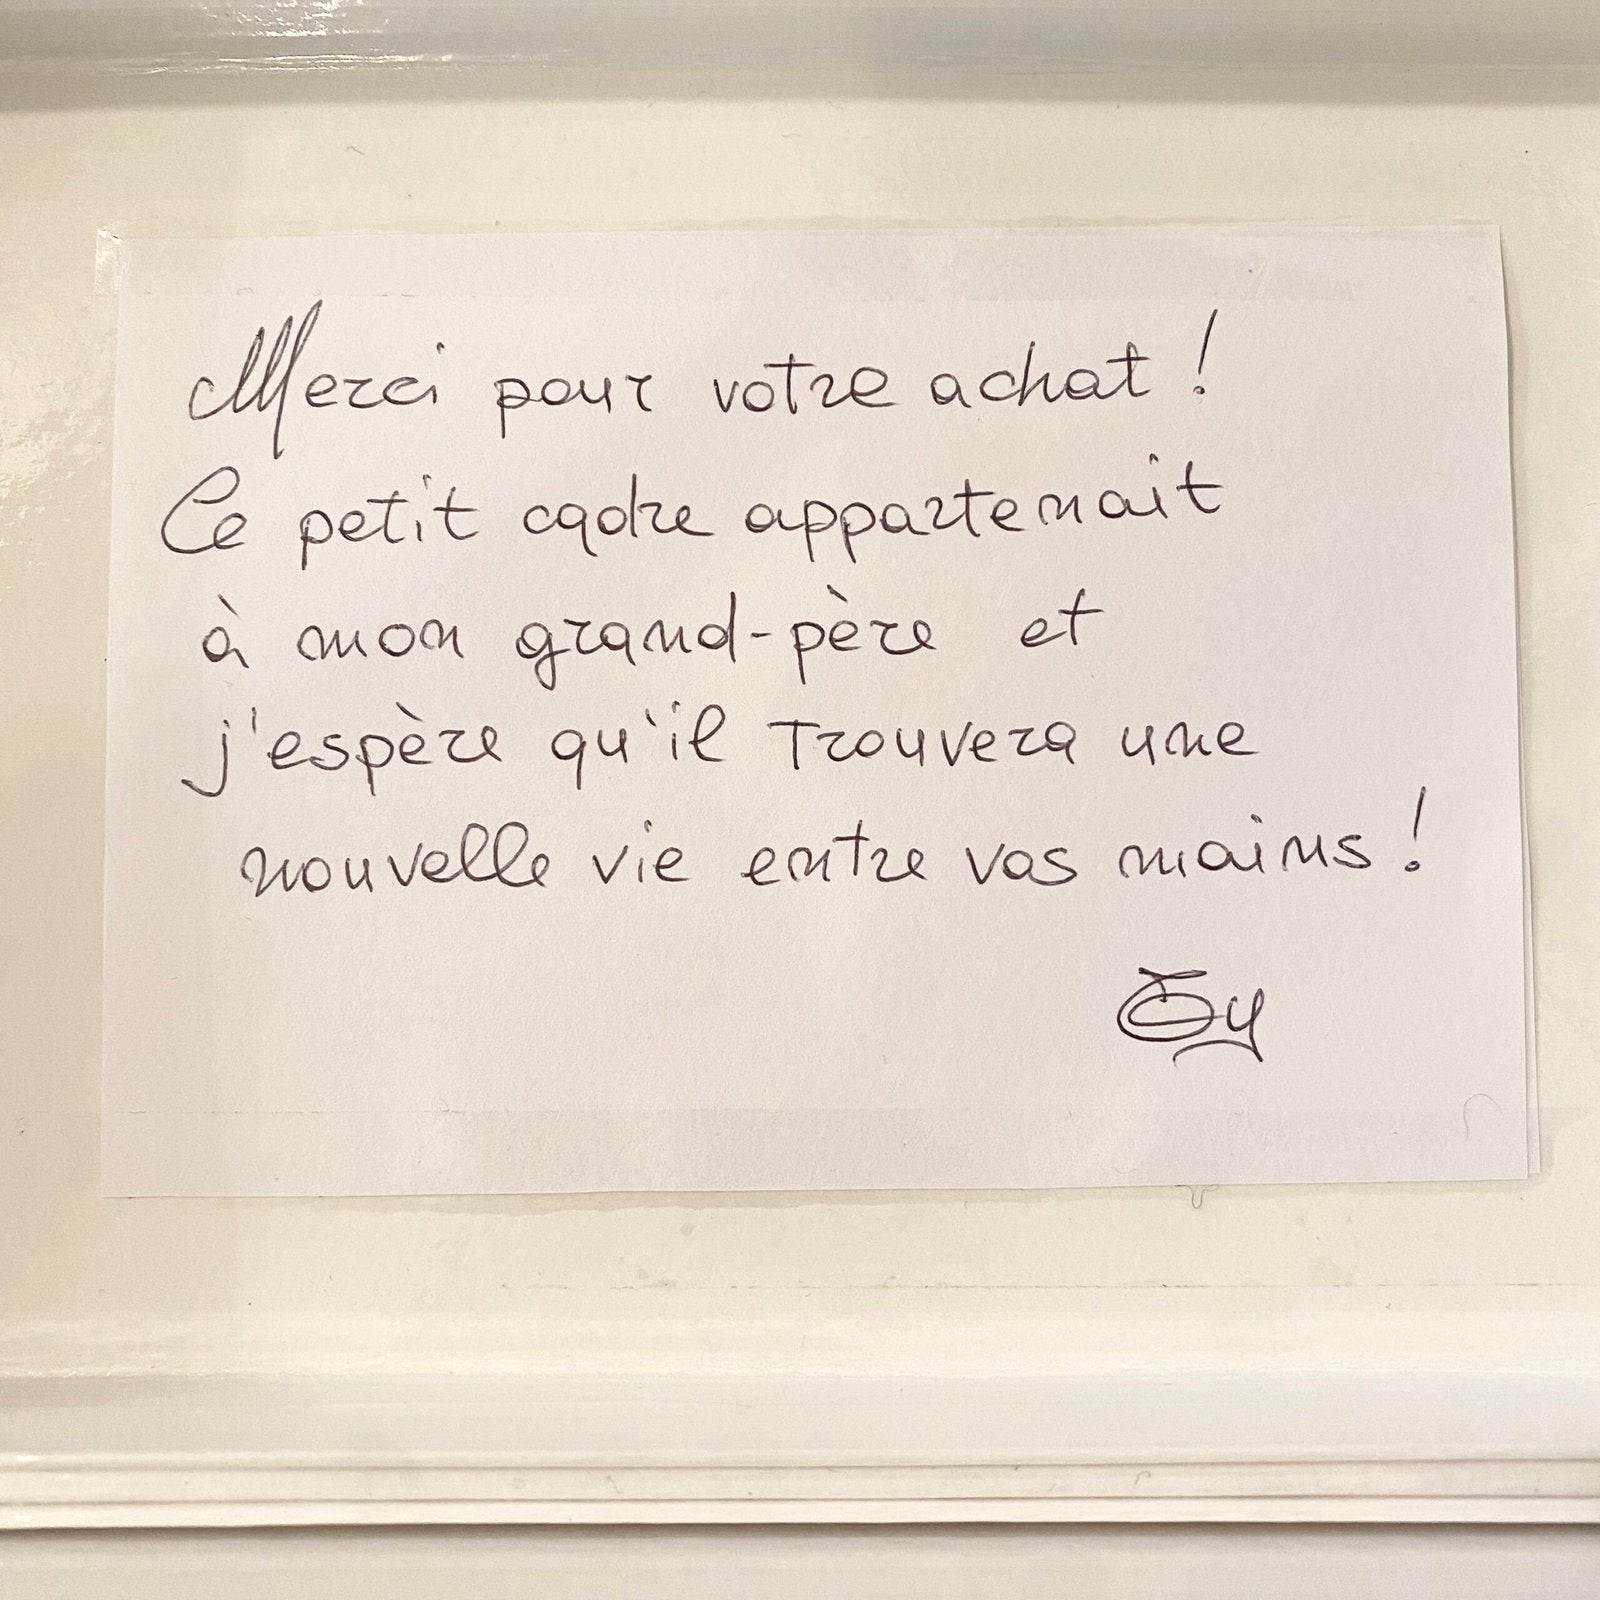 Merci pour votre achat !
Ce petit cadre appartenait
à mon grand-père et
j'espère qu'il trouvera une
nouvelle vie entre vos mains !